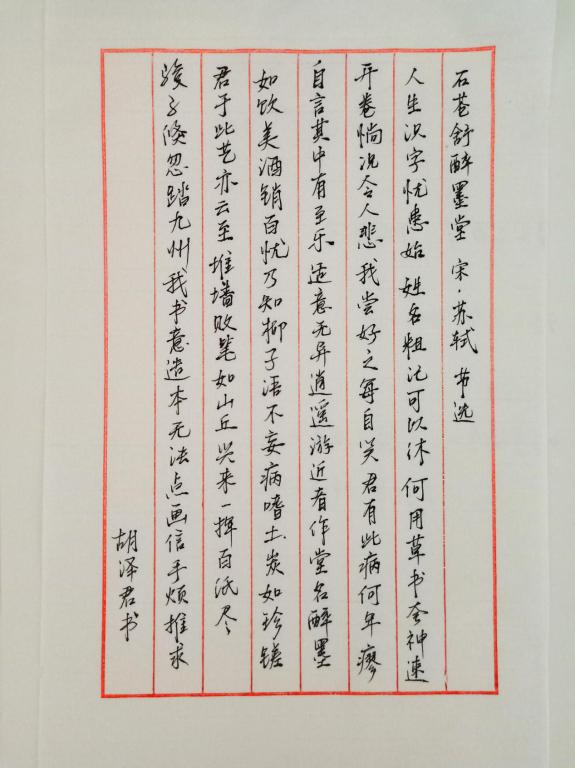 石苍舒醉墨堂 宋·苏轼 节选
人生识字忧患始 姓名粗记可以休 何用草书夸神速
开卷惝况令人悲 我尝好之每自笑 君有此病何年瘳
自言其中有至乐 适意无异逍遥游 近者作堂名醉墨
如饮美酒销百忧 乃知柳子语不妄 病嗜土炭如珍馐
君于此艺亦云至 堆墙败笔如山丘 兴来一挥百纸尽
骏马倏忽踏九州 我书意造本无法 点画信手烦推求
胡泽君书